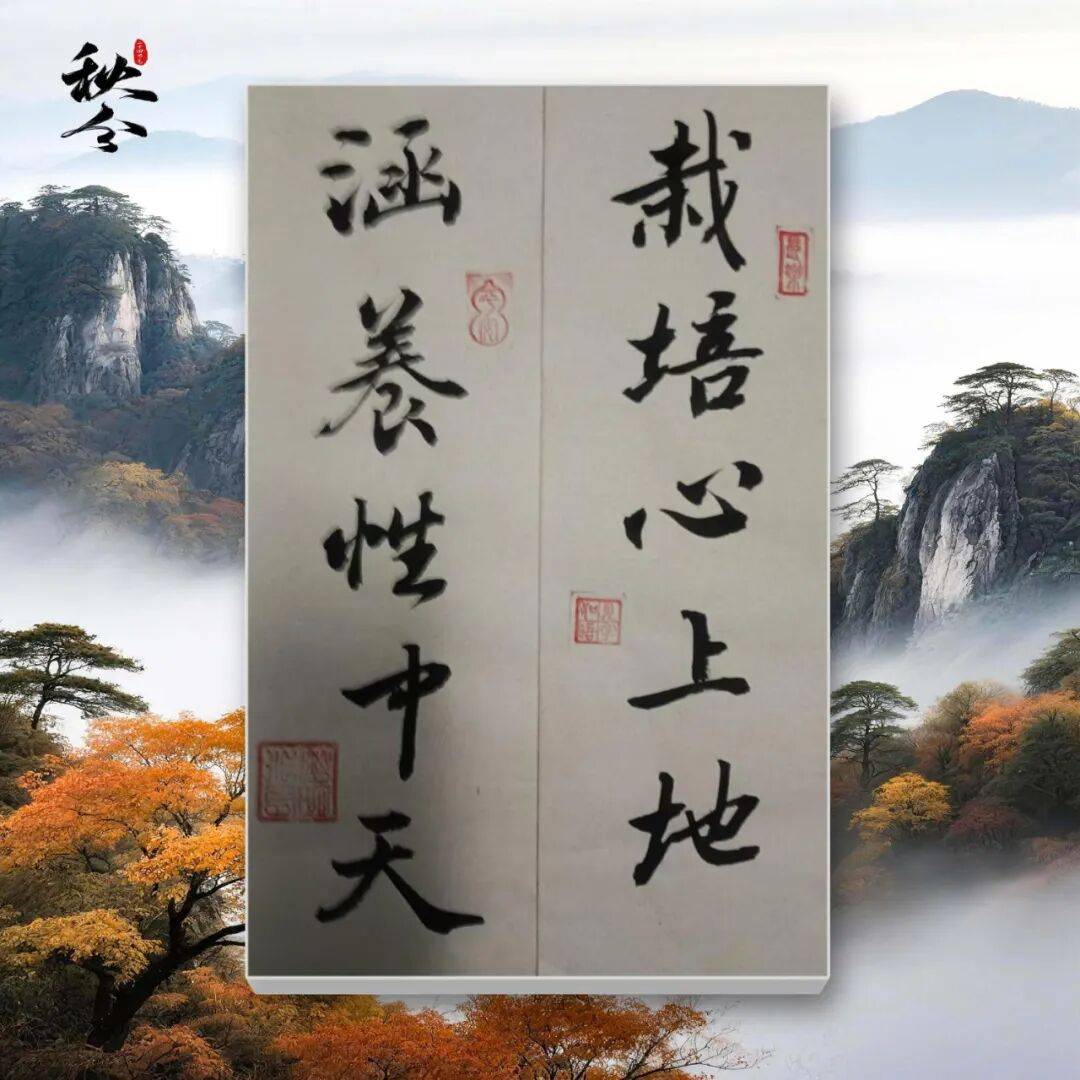 秋分
栽培心上地
涵養性中天